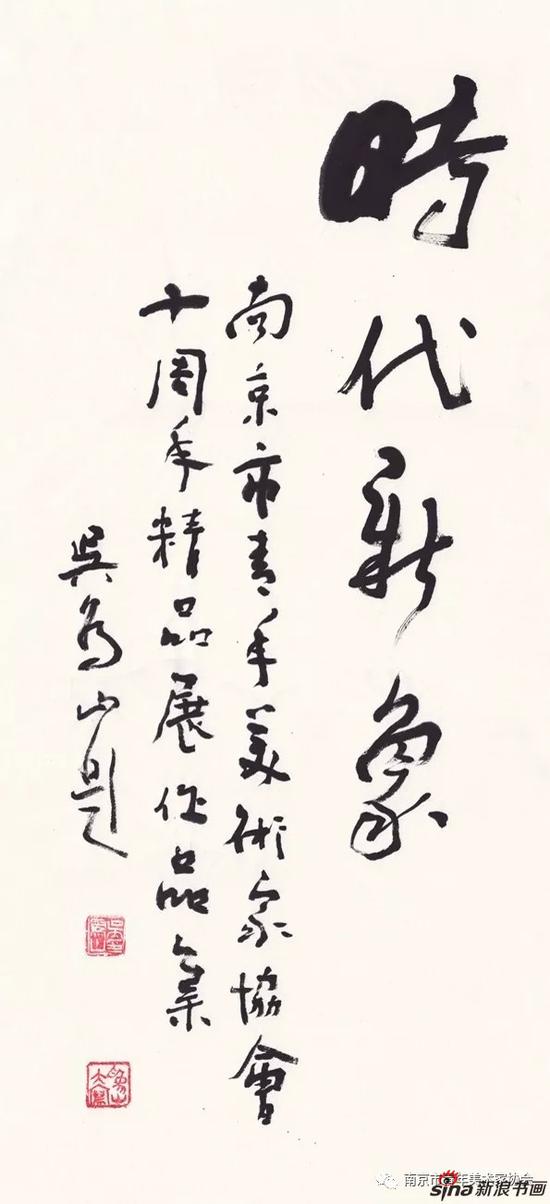 時代新象
南京市青年美術家協會
十周年精品展作品集
吳為山題
南京市青年美术家协会
sina 新浪书画